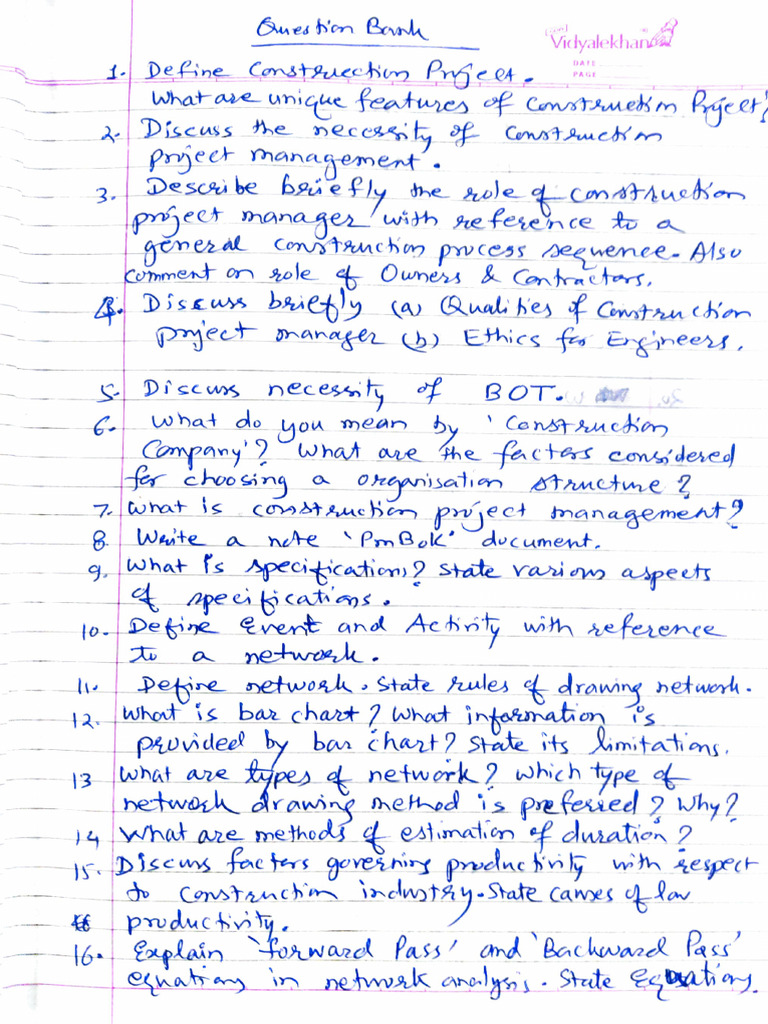 Question Bank
Vidyalekhan
DATE
PAGE
1. Define Construction Project.
What are unique features of Construction Project?
2. Discuss the necessity of construction
project management.
3. Describe briefly the role of construction
project manager with reference to a
general construction process sequence. Also
comment on role of Owners & Contractors.
4. Discuss briefly (a) Qualities of Construction
project manager (b) Ethics for Engineers.
5. Discuss necessity of BOT.
6. What do you mean by 'Construction
Company'? What are the factors considered
for choosing a organisation structure?
7. What is construction project management?
8. Write a note 'PmBok' document.
9. What is specifications? State various aspects
of specifications.
10. Define Event and Activity with reference
to a network.
11. Define network. State rules of drawing network.
12. What is bar chart? What information is
provided by bar chart? State its limitations.
13 What are types of network? Which type of
network drawing method is preferred? Why?
14 What are methods of estimation of duration?
15. Discuss factors governing productivity with respect
to construction industry. State causes of low
productivity.
16. Explain 'Forward Pass' and 'Backward Pass'
equations in network analysis. State Equations.